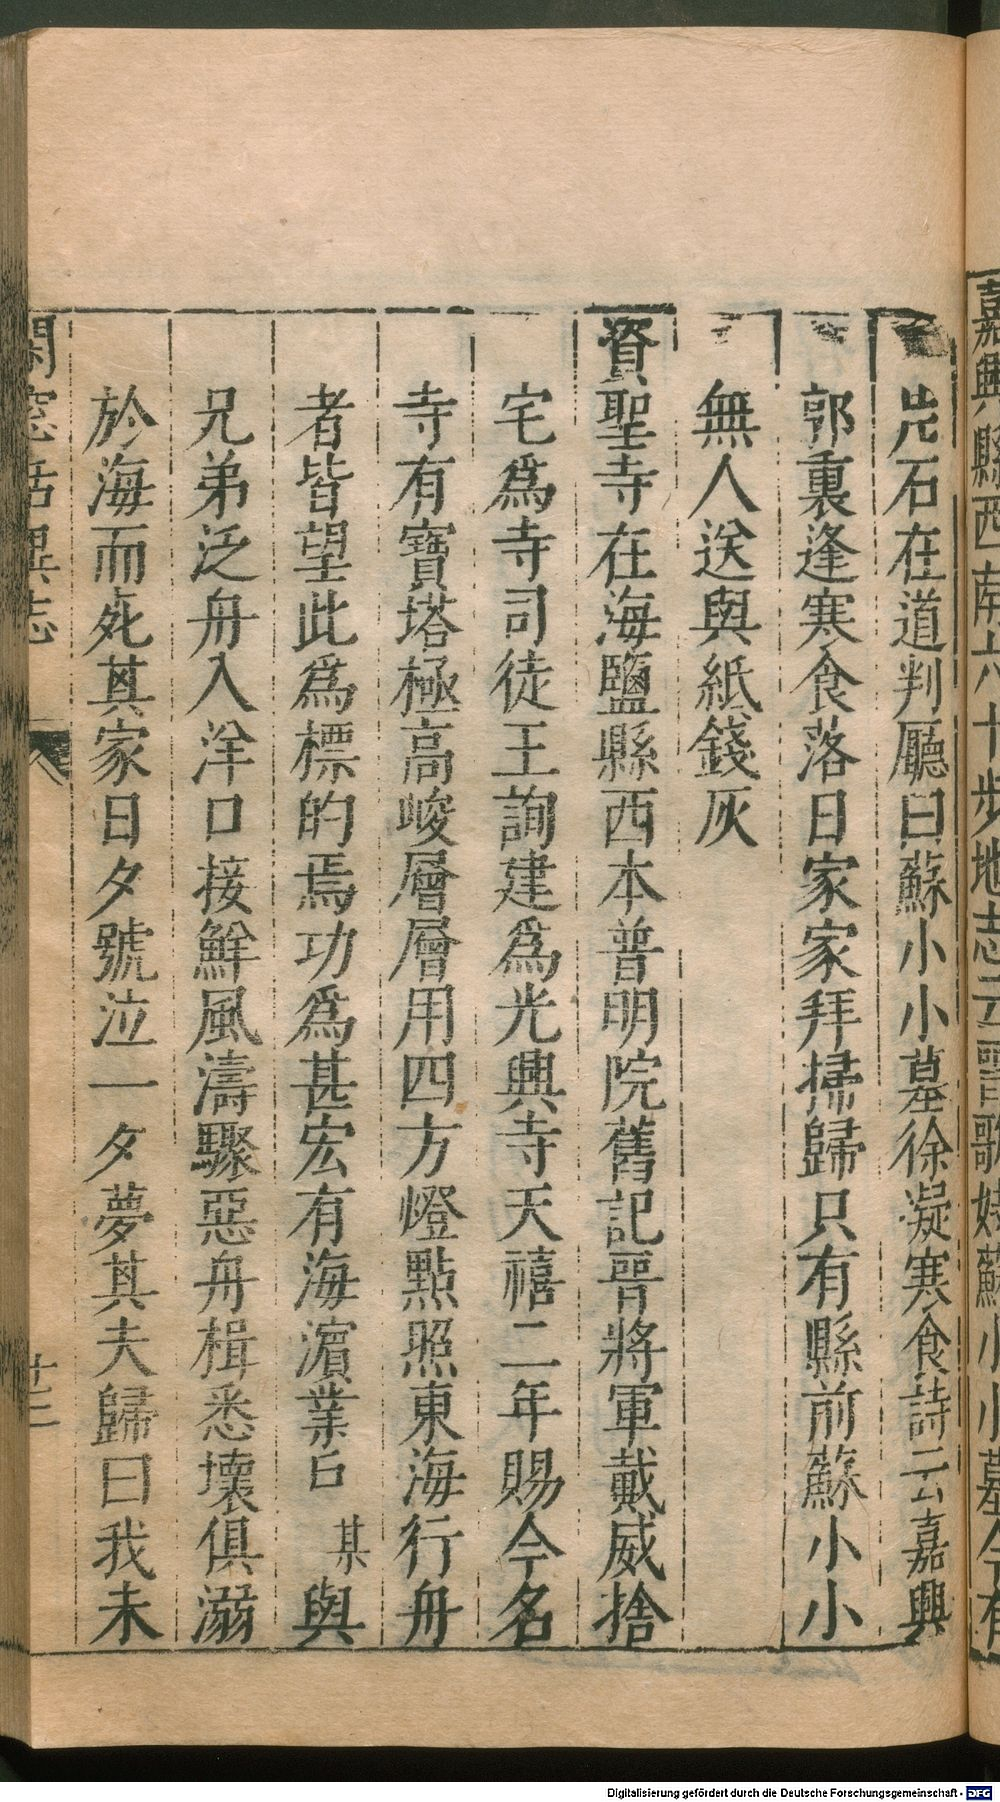 嘉興縣西南六十步地志云晉歌妓蘇小小墓今有
片石在道判廳曰蘇小小墓徐凝寒食詩云嘉興
郭裏逢寒食落日家家拜掃歸只有縣前蘇小小
無人送與紙錢灰
資聖寺在海鹽縣西本普明院舊記晉將軍戴威捨
宅爲寺司徒王詢建爲光興寺天禧二年賜今名
寺有寶塔極高峻層層用四方燈點照東海行舟
者皆望此爲標的焉功爲甚宏有海濵業戶某與
兄弟泛舟入洋口接鮮風濤驟惡舟楫悉壞俱溺
於海而死其家日夕號泣一夕夢其夫歸曰我未
閑窓括異志
十二
Digitalisierung gefördert durch die Deutsche Forschungsgemeinschaft - DFG